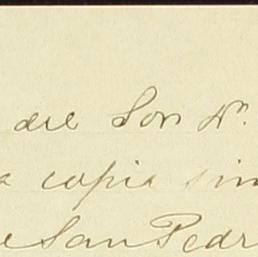 del Sor Dn.
a copia sim
e San Pedr